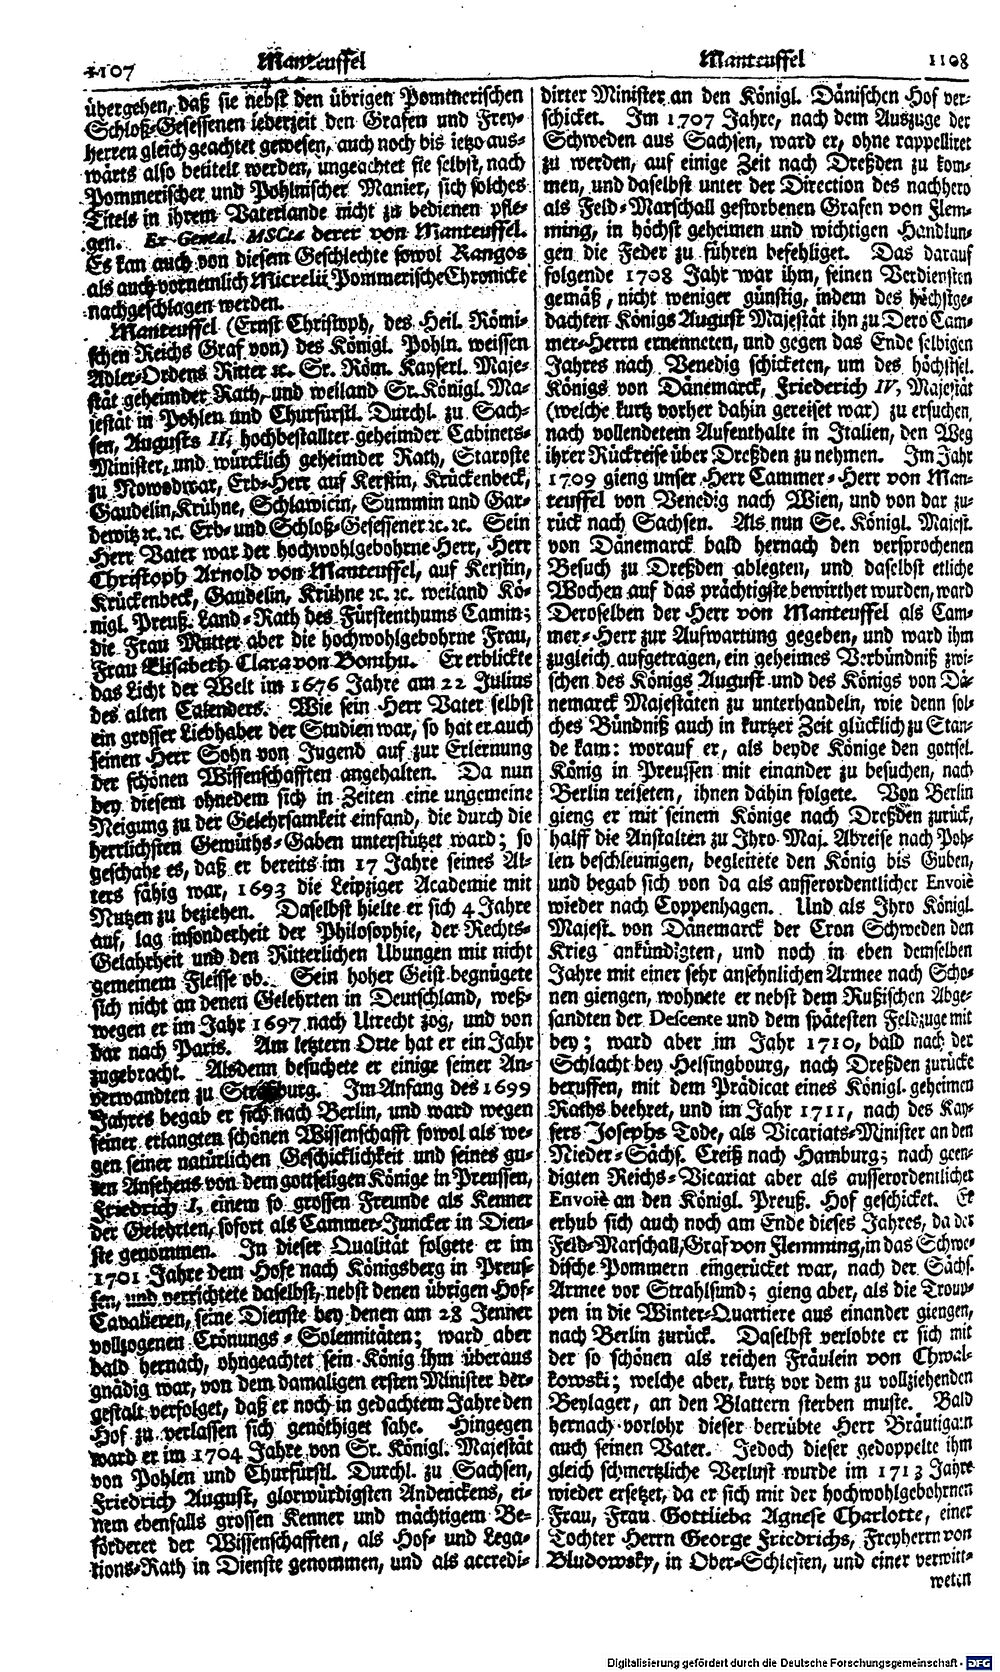 1107
Manteuffel
Manteuffel
1108
übergehen, daß sie nebst den übrigen Pommerischen
Schloß-Gesessenen iederzeit den Grafen und Frey-
Herren gleich geachtet gewesen, auch noch bis ietzo aus-
wärts also betitelt werden, ungeachtet sie selbst, nach
Pommerischer und Pohlnischer Manier, sich solches
Titels in ihrem Vaterlande nicht zu bedienen pfle-
gen. Ex Geneal. MSCis derer von Manteuffel.
Es kan auch von diesem Geschlechte sowol Rangos
als auch vornemlich Micrelii Pommerische Chronicke
nachgeschlagen werden.
Manteuffel (Ernst Christoph, des Heil. Römi-
schen Reichs Graf von) des Königl. Pohln. weissen
Adler-Ordens Ritter ꝛc. Sr. Röm. Kayserl. Maje-
stät geheimder Rath, und weiland Sr. Königl. Ma-
jestät in Pohlen und Churfürstl. Durchl. zu Sach-
sen, Augusts II, hochbestallter geheimder Cabinets-
Minister, und würcklich geheimder Rath, Staroste
zu Nowodwar, Erb-Herr auf Kerstin, Krückenbeck,
Gaudelin, Krühne, Schlawicin, Summin und Gar-
dewitz ꝛc. ꝛc. Erb- und Schloß-Gesessener ꝛc. ꝛc. Sein
Herr Vater war der hochwohlgebohrne Herr, Herr
Christoph Arnold von Manteuffel, auf Kerstin,
Krückenbeck, Gaudelin, Krühne ꝛc. ꝛc. weiland Kö-
nigl. Preuß. Land-Rath des Fürstenthums Camin;
die Frau Mutter aber die hochwohlgebohrne Frau,
Frau Elisabeth Clara von Bomhu. Er erblickte
das Licht der Welt im 1676 Jahre am 22 Julius
des alten Calenders. Wie sein Herr Vater selbst
ein grosser Liebhaber der Studien war, so hat er auch
seinen Herr Sohn von Jugend auf zur Erlernung
der schönen Wissenschafften angehalten. Da nun
bey diesem ohnedem sich in Zeiten eine ungemeine
Neigung zu der Gelehrsamkeit einfand, die durch die
herrlichsten Gemüths-Gaben unterstützet ward; so
geschahe es, daß er bereits im 17 Jahre seines Al-
ters fähig war, 1693 die Leipziger Academie mit
Nutzen zu beziehen. Daselbst hielte er sich 4 Jahre
auf, lag insonderheit der Philosophie, der Rechts-
Gelahrheit und den Ritterlichen Ubungen mit nicht
gemeinem Fleisse ob. Sein hoher Geist begnügete
sich nicht an denen Gelehrten in Deutschland, weß-
wegen er im Jahr 1697 nach Utrecht zog, und von
dar nach Paris. Am letztern Orte hat er ein Jahr
zugebracht. Alsdenn besuchete er einige seiner An-
verwandten zu Straßburg. Im Anfang des 1699
Jahres begab er sich nach Berlin, und ward wegen
seiner erlangten schönen Wissenschafft sowol als we-
gen seiner natürlichen Geschicklichkeit und seines gu-
ten Ansehens von dem gottseligen Könige in Preussen,
Friedrich I, einem so grossen Freunde als Kenner
der Gelehrten, sofort als Cammer-Juncker in Dien-
ste genommen. In dieser Qualität folgete er im
1701 Jahre dem Hofe nach Königsberg in Preus-
sen, und verrichtete daselbst, nebst denen übrigen Hof-
Cavalieren, seine Dienste bey denen am 28 Jenner
vollzogenen Crönungs-Solennitäten; ward aber
bald hernach, ohngeachtet sein König ihm überaus
gnädig war, von dem damaligen ersten Minister der-
gestalt verfolget, daß er noch in gedachtem Jahre den
Hof zu verlassen sich genöthiget sahe. Hingegen
ward er im 1704 Jahre von Sr. Königl. Majestät
von Pohlen und Churfürstl. Durchl. zu Sachsen,
Friedrich August, glorwürdigsten Andenckens, ei-
nem ebenfalls grossen Kenner und mächtigem Be-
förderer der Wissenschafften, als Hof- und Lega-
tions-Rath in Dienste genommen, und als accredi-
dirter Minister an den Königl. Dänischen Hof ver-
schicket. Im 1707 Jahre, nach dem Auszuge der
Schweden aus Sachsen, ward er, ohne rappelliret
zu werden, auf einige Zeit nach Dreßden zu kom-
men, und daselbst unter der Direction des nachhero
als Feld-Marschall gestorbenen Grafen von Flem-
ming, in höchst geheimen und wichtigen Handlun-
gen die Feder zu führen befehliget. Das darauf
folgende 1708 Jahr war ihm, seinen Verdiensten
gemäß, nicht weniger günstig, indem des höchstge-
dachten Königs August Majestät ihn zu Dero Cam-
mer-Herrn ernenneten, und gegen das Ende selbigen
Jahres nach Venedig schicketen, um des höchstsel.
Königs von Dänemarck, Friederich IV, Majestät
(welche kurtz vorher dahin gereiset war) zu ersuchen,
nach vollendetem Aufenthalte in Italien, den Weg
ihrer Rückreise über Dreßden zu nehmen. Im Jahr
1709 gieng unser Herr Cammer-Herr von Man-
teuffel von Venedig nach Wien, und von dar zu-
rück nach Sachsen. Als nun Se. Königl. Majest.
von Dänemarck bald hernach den versprochenen
Besuch zu Dreßden ablegten, und daselbst etliche
Wochen auf das prächtigste bewirthet wurden, ward
Deroselben der Herr von Manteuffel als Cam-
mer-Herr zur Aufwartung gegeben, und ward ihm
zugleich aufgetragen, ein geheimes Verbündniß zwi-
schen des Königs August und des Königs von Dä-
nemarck Majestäten zu unterhandeln, wie denn sol-
ches Bündniß auch in kurtzer Zeit glücklich zu Stan-
de kam: worauf er, als beyde Könige den gottsel.
König in Preussen mit einander zu besuchen, nach
Berlin reiseten, ihnen dahin folgete. Von Berlin
gieng er mit seinem Könige nach Dreßden zurück,
halff die Anstalten zu Ihro Maj. Abreise nach Poh-
len beschleunigen, begleitete den König bis Guben,
und begab sich von da als ausserordentlicher Envoié
wieder nach Coppenhagen. Und als Ihro Königl.
Majest. von Dänemarck der Cron Schweden den
Krieg ankündigten, und noch in eben demselben
Jahre mit einer sehr ansehnlichen Armee nach Scho-
nen giengen, wohnete er nebst dem Rußischen Abge-
sandten der Descente und dem spätesten Feldzuge mit
bey; ward aber im Jahr 1710, bald nach der
Schlacht bey Helsingbourg, nach Dreßden zurücke
beruffen, mit dem Prädicat eines Königl. geheimen
Raths beehret, und im Jahr 1711, nach des Kay-
sers Josephs Tode, als Vicariats-Minister an den
Nieder-Sächs. Creiß nach Hamburg; nach geen-
digten Reichs-Vicariat aber als ausserordentlicher
Envoié an den Königl. Preuß. Hof geschicket. Er
erhub sich auch noch am Ende dieses Jahres, da der
Feld-Marschall, Graf von Flemming, in das Schwe-
dische Pommern eingerücket war, nach der Sächs.
Armee vor Strahlsund; gieng aber, als die Troup-
pen in die Winter-Quartiere aus einander giengen,
nach Berlin zurück. Daselbst verlobte er sich mit
der so schönen als reichen Fräulein von Chwal-
kowski; welche aber, kurtz vor dem zu vollziehenden
Beylager, an den Blattern sterben muste. Bald
hernach vorlohr dieser betrübte Herr Bräutigam
auch seinen Vater. Jedoch dieser gedoppelte ihm
gleich schmertzliche Verlust wurde im 1713 Jahre
wieder ersetzet, da er sich mit der hochwohlgebohrnen
Frau, Frau Gottlieba Agnese Charlotte, einer
Tochter Herrn George Friedrichs, Freyherrn von
Bludowsky, in Ober-Schlesien, und einer verwitt-
weten
Digitalisierung gefördert durch die Deutsche Forschungsgemeinschaft - DFG